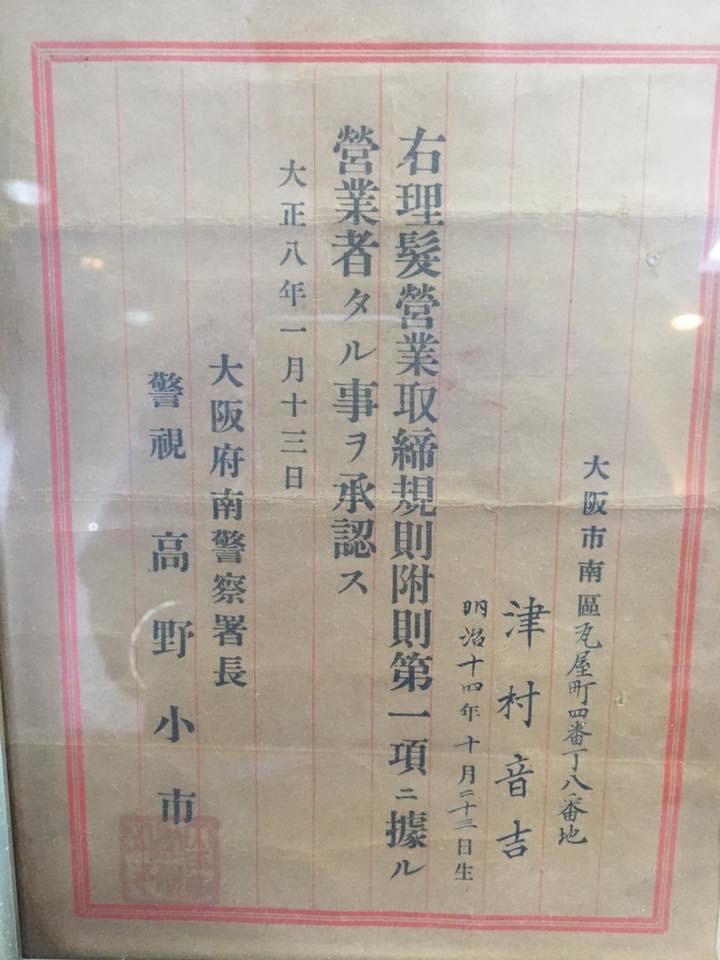 大阪市南區瓦屋町四番丁八番地
津村音吉
明治十四年十月二十三日生
右理髮營業取締規則附則第一項ニ據ル
營業者タル事ヲ承認ス
大正八年一月十三日
大阪府南警察署長
警視 高野小市